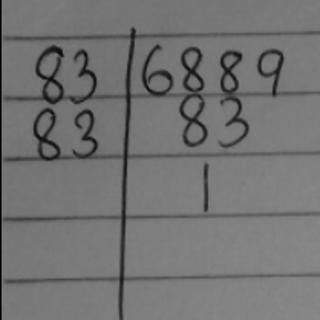 83 6889
83 83
1